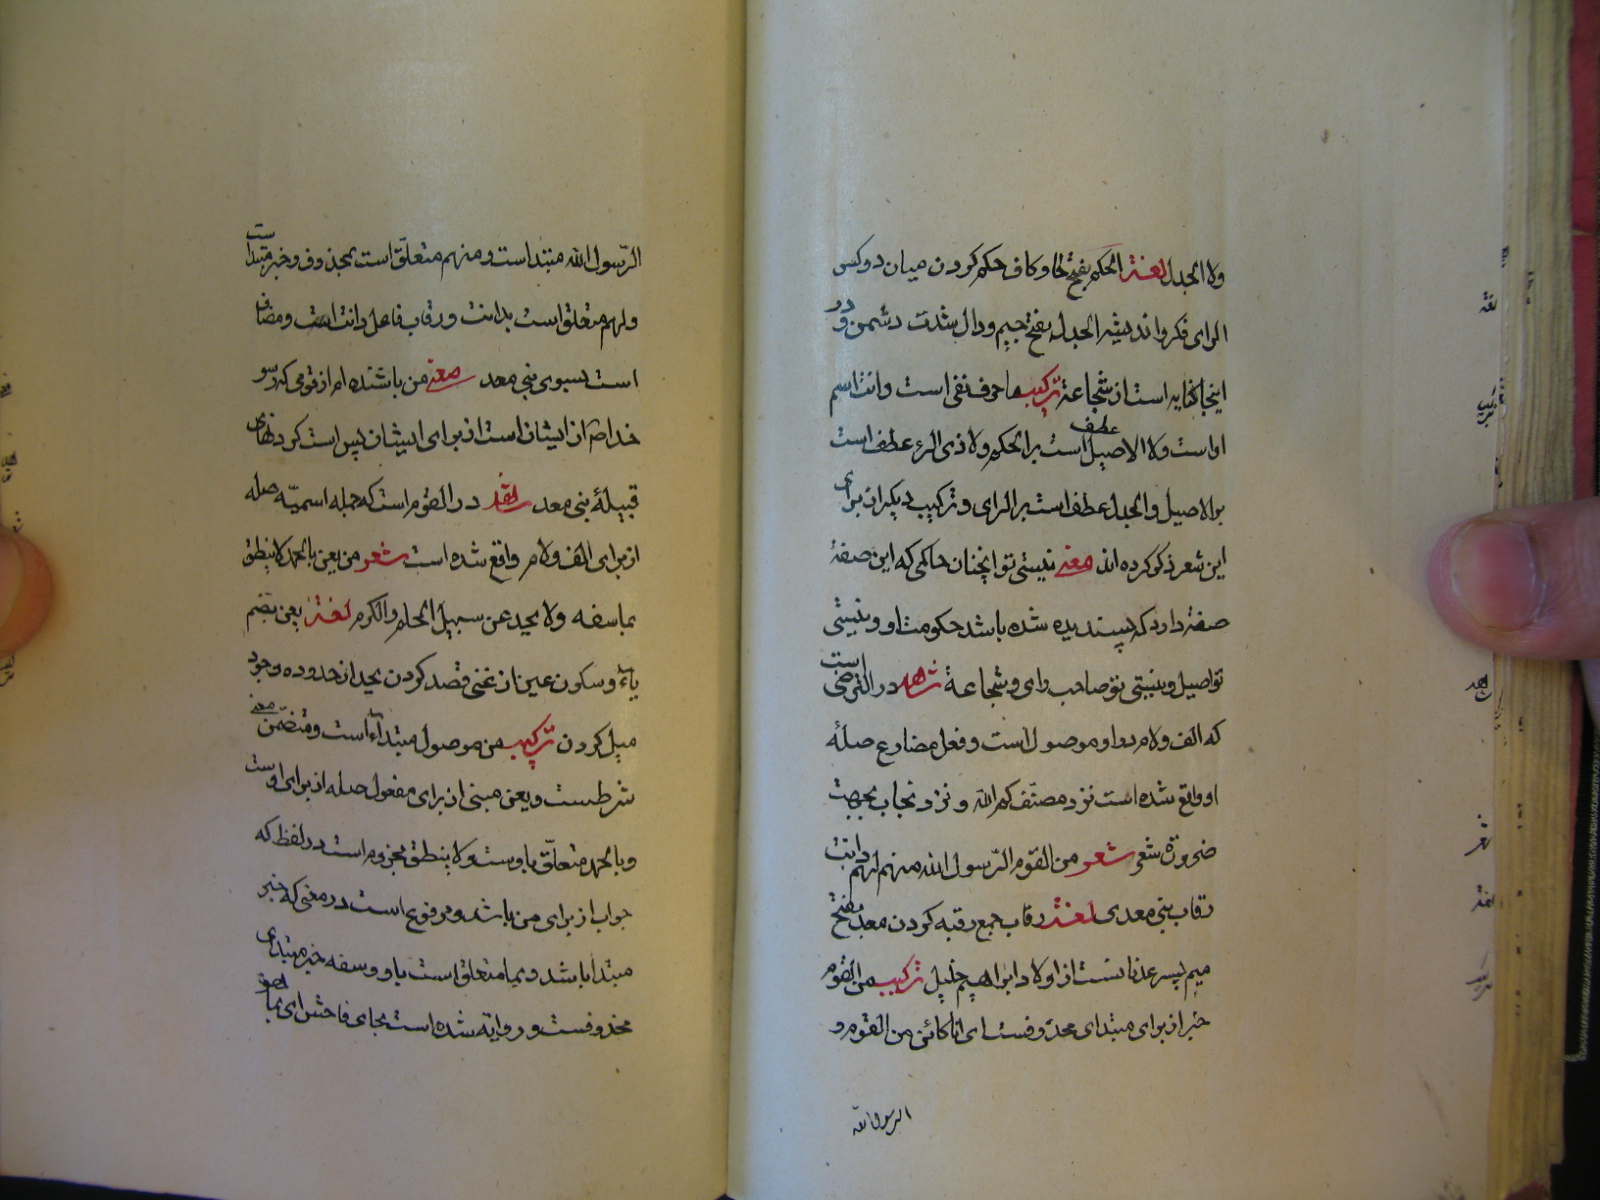 ولا الجدل لغة الحکم بفتح حا و کاف حکم کردن میان دو کس
الرای فکر و اندیشه الجدل بفتح جیم و دال شدت دشمن و در
اینجا کنایه است از شجاعة ترکیب ما حرف نفی است و انت اسم
او است ولا الاصیل عطف است بر الحکم ولا ذی الرء عطف است
بر الاصیل والجدل عطف است بر الرای و ترکیب دیکران برای
این شعر ذکر کرده اند معنی نیستی تو انچنان حاکمی که این صفة
صفة دارد که پسندیده شده باشد حکومت او و نیستی
تو اصیل و نیستی تو صاحب رای و شجاعة شاهد در الترضی است
که الف و لام در او موصول است و فعل مضارع صلهٔ
او واقع شده است نزد مصنف کره الله و نزد نحاب بجهت
ضرورة شعر شعر من القوم الرّسول الله منهم لهم دانت
رقاب بنی معدی لغة رقاب جمع رقبه کردن معد بفتح
میم پسر عدنانست از اولاد ابراهیم خلیل ترکیب من القوم
خبر از برای مبتدای محذوفست ای انا کائن من القوم و
الرسول الله
الرّسول الله مبتداست و منهم متعلّق است بمحذوف و خبر مبتداست
و لهم متعلق است بدانت و رقاب فاعل دانت است و مضاف
است بسوی بنی معد معنی من باشنده ام از قومی که رسو
خدا ص از ایشان است از برای ایشان پس است کردنهای
قبیلهٔ بنی معد شاهد در القوم است که جمله اسمیّه صله
از برای الف و لام واقع شده است شعر من یعن بالحمد لا ینطق
بما سفه ولا یحد عن سبیل الحلم والکرم لغة یعن بضم
یاء و سکون عین از عنی قصد کردن یحد از حدوده وجود
میل کردن ترکیب من موصول مبتداء است و متضمّن معنی
شرطست و یعن مبنی از برای مفعول صله از برای اوست
و بالحمد متعلّق باوست و لا ینطق مجزوم است در لفظ که
جواب از برای من باشد و مرفوع است در معنی که خبر
مبتدا باشد و بما متعلق است باو و سفه خبر مبتدای
محذوفست و روایة شده است بجای فاحش ای بما هو